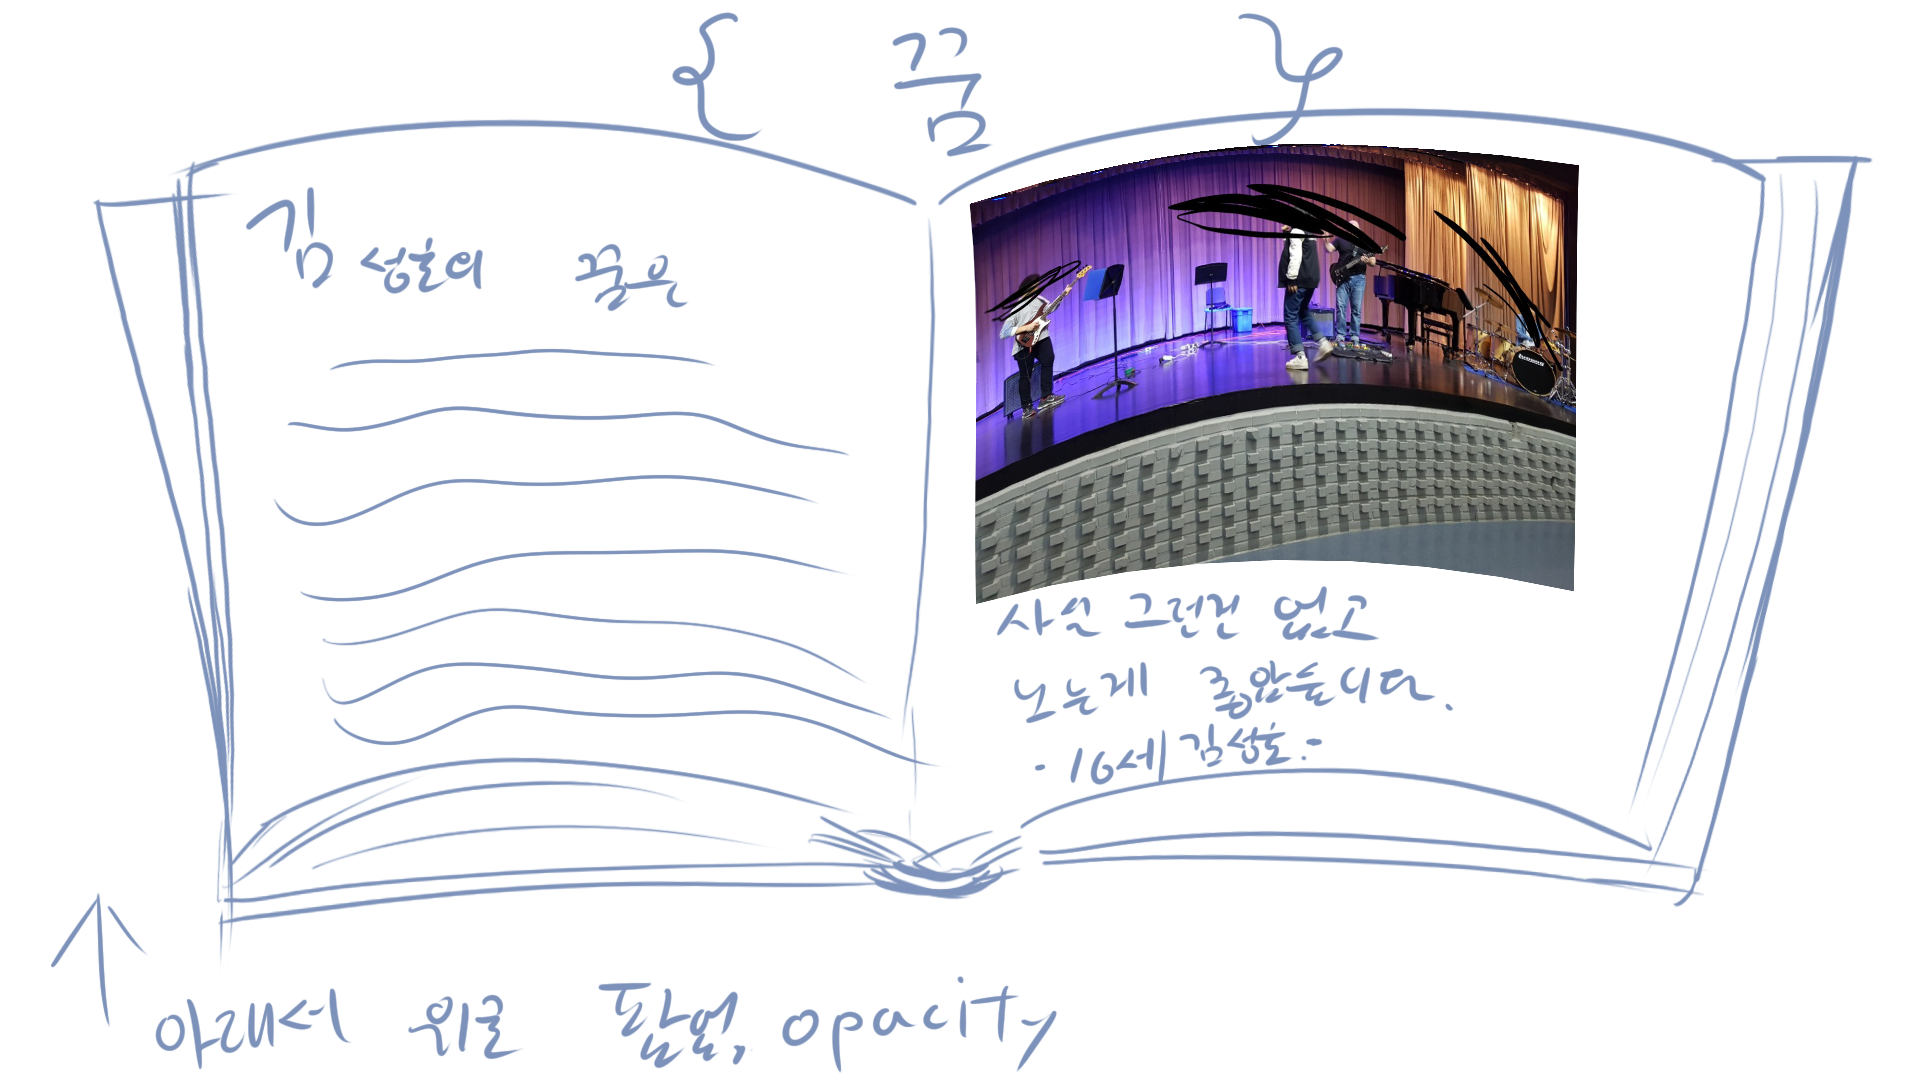 { 꿈 }
김성호의 꿈은
사실 그런건 없고
노는게 좋았습니다.
- 16세 김성호. -
↑
아래서 위로 팝업, opacity